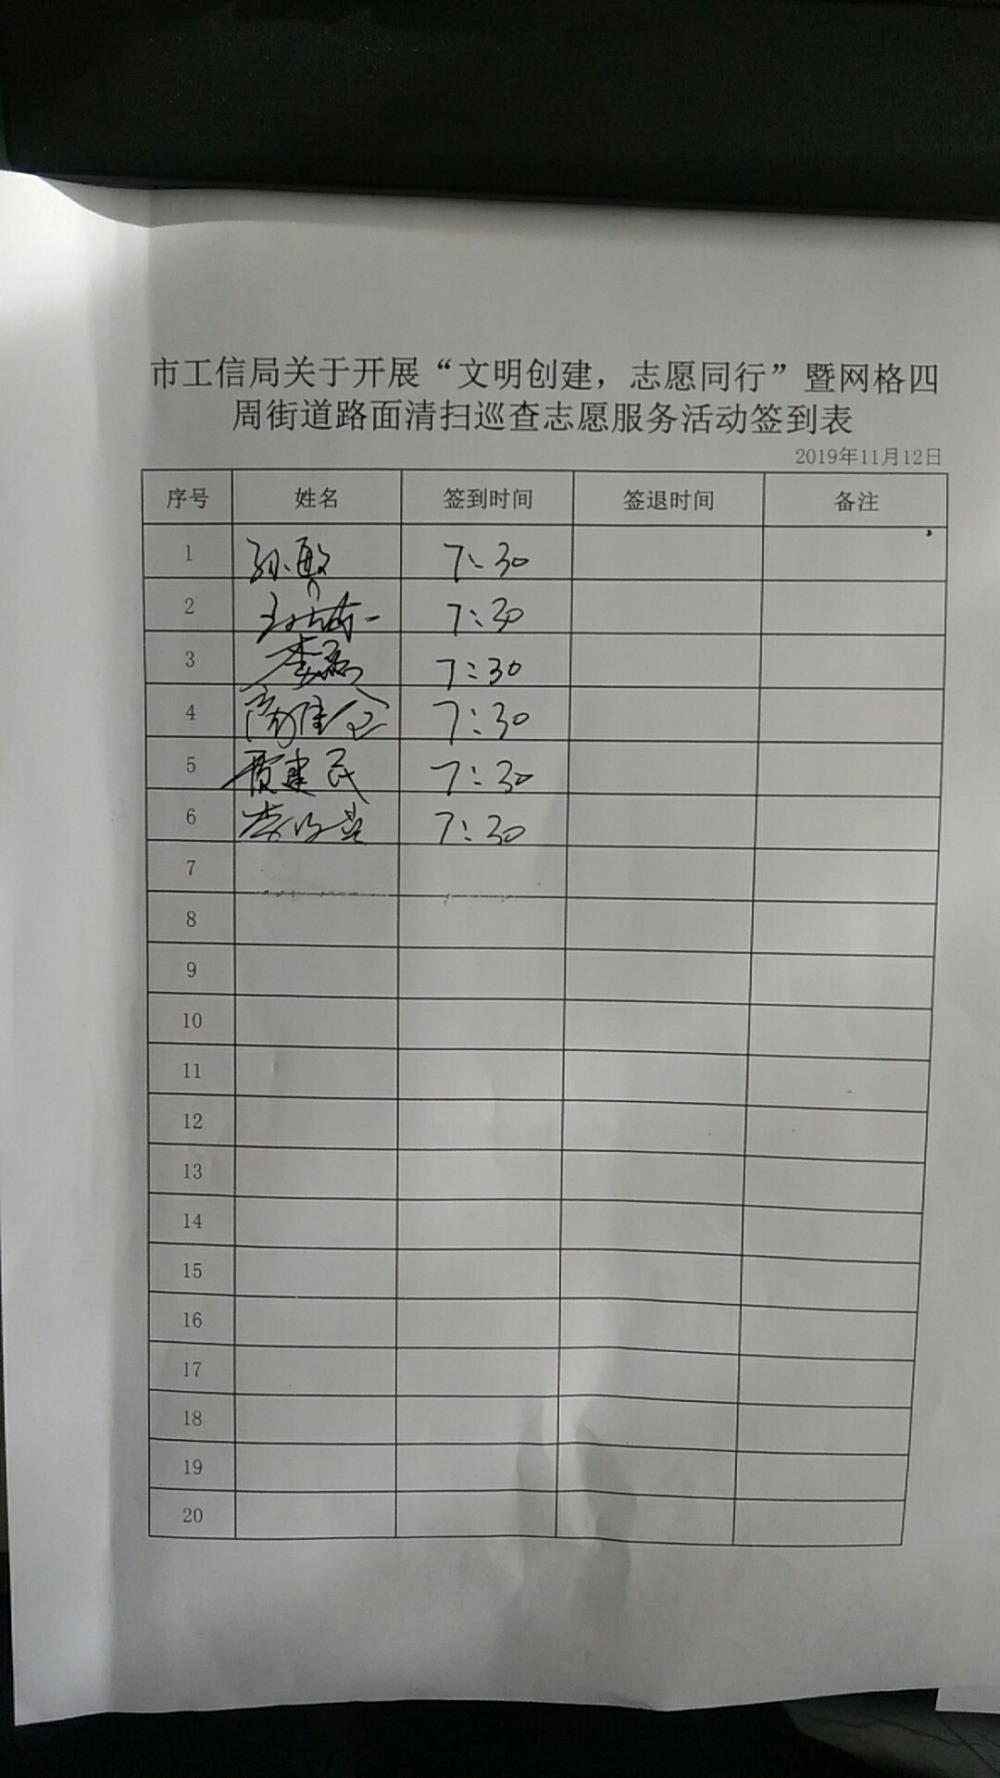 市工信局关于开展“文明创建，志愿同行”暨网格四
周街道路面清扫巡查志愿服务活动签到表
2019年11月12日
序号 姓名 签到时间 签退时间 备注
1 孙敏 7:30
2 7:30
3 李磊 7:30
4 7:30
5 贾建民 7:30
6 7:30
7
8
9
10
11
12
13
14
15
16
17
18
19
20